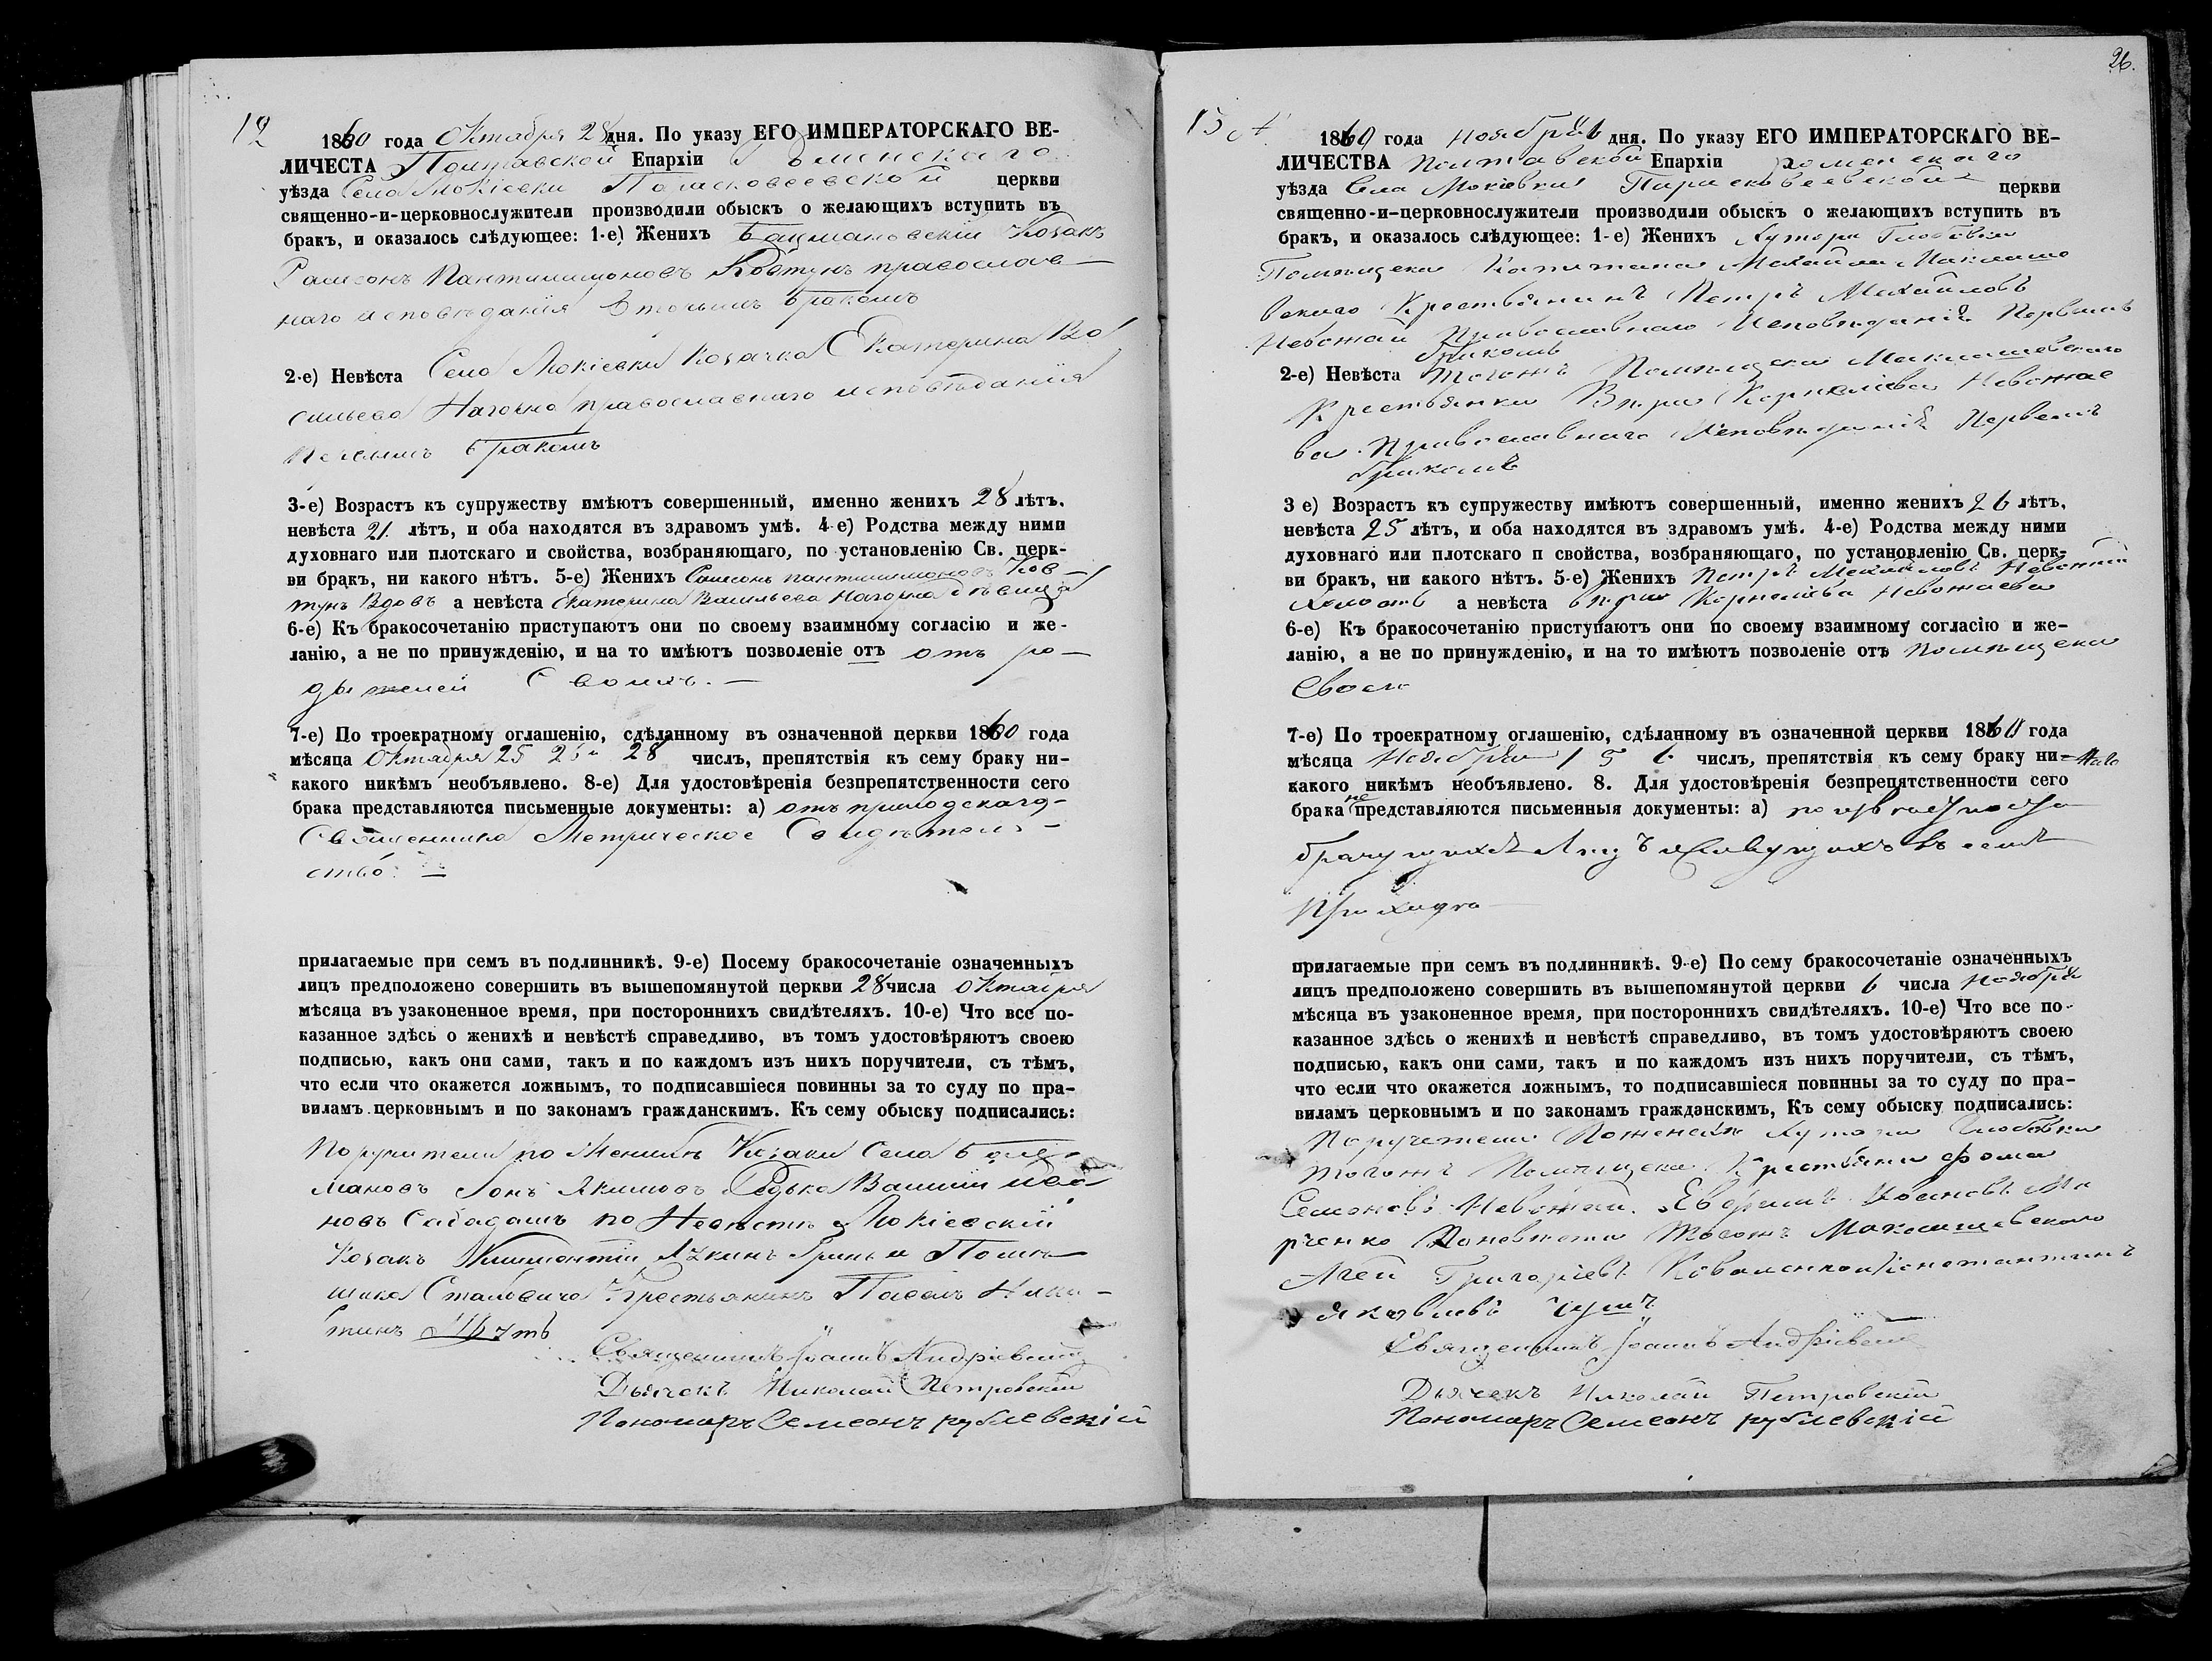 12
1860 года Октября 28 дня. По указу ЕГО ИМПЕРАТОРСКАГО ВЕ-
ЛИЧЕСТА Полтавской Епархіи Роменскаго
уѣзда Села Мокіевки Параскевіевской церкви
священно-и-церковнослужители производили обыскъ о желающихъ вступить въ
бракъ, и оказалось слѣдующее: 1-е) Женихъ Бацмановскій Козакъ
Самсонъ Пантилимоновъ Ковтунъ православ-
наго исповѣданія вторымъ бракомъ
2-е) Невѣста Села Мокіевки козачка Екатерина Ва
сильева Нагорна православнаго исповѣданія
первымъ бракомъ
3-е) Возрастъ къ супружеству имѣютъ совершенный, именно женихъ 28 лѣтъ.
невѣста 21 лѣтъ, и оба находятся въ здравомъ умѣ. 4-е) Родства между ними
духовнаго или плотскаго и свойства, возбраняющаго, по установленію Св. церк-
ви бракъ, ни какого нѣтъ. 5-е) Женихъ Самсонъ Пантилимоновъ Ков
тунъ Вдовъ а невѣста Екатерина Васильева Нагорна дѣвица
6-е) Къ бракосочетанію приступаютъ они по своему взаимному согласію и же-
ланію, а не по принужденію, и на то имѣютъ позволеніе отъ отъ ро-
дителей своихъ. —
7-е) По троекратному оглашенію, сдѣланному въ означенной церкви 1860 года
мѣсяца Октября 25 26 и 28 числъ, препятствія къ сему браку ни-
какого никѣмъ необъявлено. 8-е) Для удостовѣренія безпрепятственности сего
брака представляются письменные документы: а) отъ приходскаго
Священника Метрическое Свидѣтель-
ство: —
прилагаемые при семъ въ подлинникѣ. 9-е) Посему бракосочетаніе означенныхъ
лицъ предположено совершить въ вышепомянутой церкви 28 числа Октября
мѣсяца въ узаконенное время, при постороннихъ свидѣтеляхъ. 10-е) Что все по-
казанное здѣсь о женихѣ и невѣстѣ справедливо, въ томъ удостовѣряютъ своею
подписью, какъ они сами, такъ и по каждомъ изъ нихъ поручители, съ тѣмъ,
что если что окажется ложнымъ, то подписавшіеся повинны за то суду по пра-
виламъ церковнымъ и по законамъ гражданскимъ. Къ сему обыску подписались:
Поручители по Женихѣ Козаки Села Бац-
мановъ Якимовъ Редька Василій Ива
новъ по Невѣстѣ Мокіевскій
Козакъ и Помѣ
щика Крестьянинъ Павелъ Ники-
тинъ
Священникъ Іоаннъ Андріевскій
Дьячекъ Николай Петровскій
Пономарь Семеонъ Рублевскій
26.
15
1860 года Ноября 6 дня. По указу ЕГО ИМПЕРАТОРСКАГО ВЕ-
ЛИЧЕСТВА Полтавской Епархіи Роменскаго
уѣзда Села Мокіевки Параскевіевской церкви
священно-и-церковнослужители производили обыскъ о желающихъ вступить въ
бракъ, и оказалось слѣдующее: 1-е) Женихъ Хутора Глобовки
Помѣщека Капитана Михаила Маклаше
вскаго Крестьянинъ Петръ Михайловъ
Невожай Православнаго Исповѣданія Первымъ
бракомъ
2-е) Невѣста тогожъ Помѣщека Маклашевскаго
Крестьянка Вѣра Корнилиева Невожае
ва Православнаго Исповѣданія Первымъ
бракомъ
3 е) Возрастъ къ супружеству имѣютъ совершенный, именно женихъ 26 лѣтъ,
невѣста 25 лѣтъ, и оба находятся въ здравомъ умѣ. 4-е) Родства между ними
духовнаго или плотскаго п свойства, возбраняющаго, по установленію Св. церк-
ви бракъ, ни какого нѣтъ. 5-е) Женихъ Петръ Михайловъ Невожай
Холостъ а невѣста Вѣра Корнилиева Невожаева
6-е) Къ бракосочетанію приступаютъ они по своему взаимному согласію и же-
ланію, а не по принужденію, и на то имѣютъ позволеніе отъ Помѣщека
Своего
7-е) По троекратному оглашенію, сдѣланному въ означенной церкви 1860 года
мѣсяца Ноября 1 5 6 числъ, препятствія къ сему браку ни-
какого никѣмъ необъявлено. 8. Для удостовѣренія безпрепятственности сего
брака не представляются письменныя документы: а) по извѣстности
брачущихся Лицъ въ семъ
Приходѣ
прилагаемые при семъ въ подлинникѣ. 9-е) По сему бракосочетаніе означенныхъ
лицъ предположено совершить въ вышепомянутой церкви 6 числа Ноября
мѣсяца въ узаконенное время, при постороннихъ свидѣтеляхъ. 10-е) Что все по-
казанное здѣсь о женихѣ и невѣстѣ справедливо, въ томъ удостовѣряютъ своею
подписью, какъ они сами, такъ и по каждомъ изъ нихъ поручители, съ тѣмъ,
что если что окажется ложнымъ, то подписавшіеся повинны за то суду по пра-
виламъ церковнымъ и по законамъ гражданскимъ, Къ сему обыску подписались:
Поручетели Поженихѣ Хутора Глобовки
тогожъ Помѣщека Крестьяни Фома
Семеновъ Невожай. Ефримъ Ивановъ Ма
рченко Поневѣсти тогожъ Маклашевскаго
Агей Григоріевъ Коваленко и Константинъ
Яковлевъ
Священникъ Іоаннъ Андріевскій
Дьячекъ Николай Петровскій
Пономарь Семеонъ Рублевскій